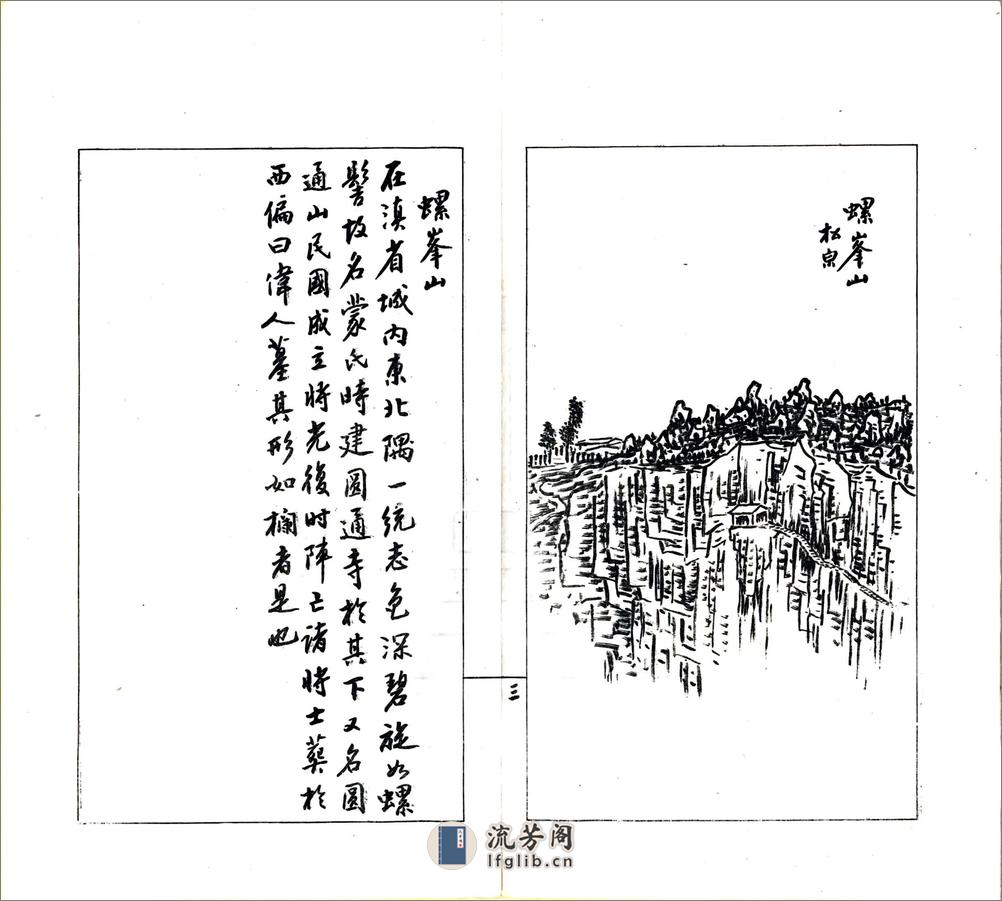 螺峯山
松泉
三
螺峯山
在滇省城内東北隅一統志色深碧旋如螺
髻故名蒙氏時建圓通寺於其下又名圓
通山民國成立將光復时陣亡諸將士葬於
西偏曰偉人墓其形如欄者是也
流芳阁
lfglib.cn